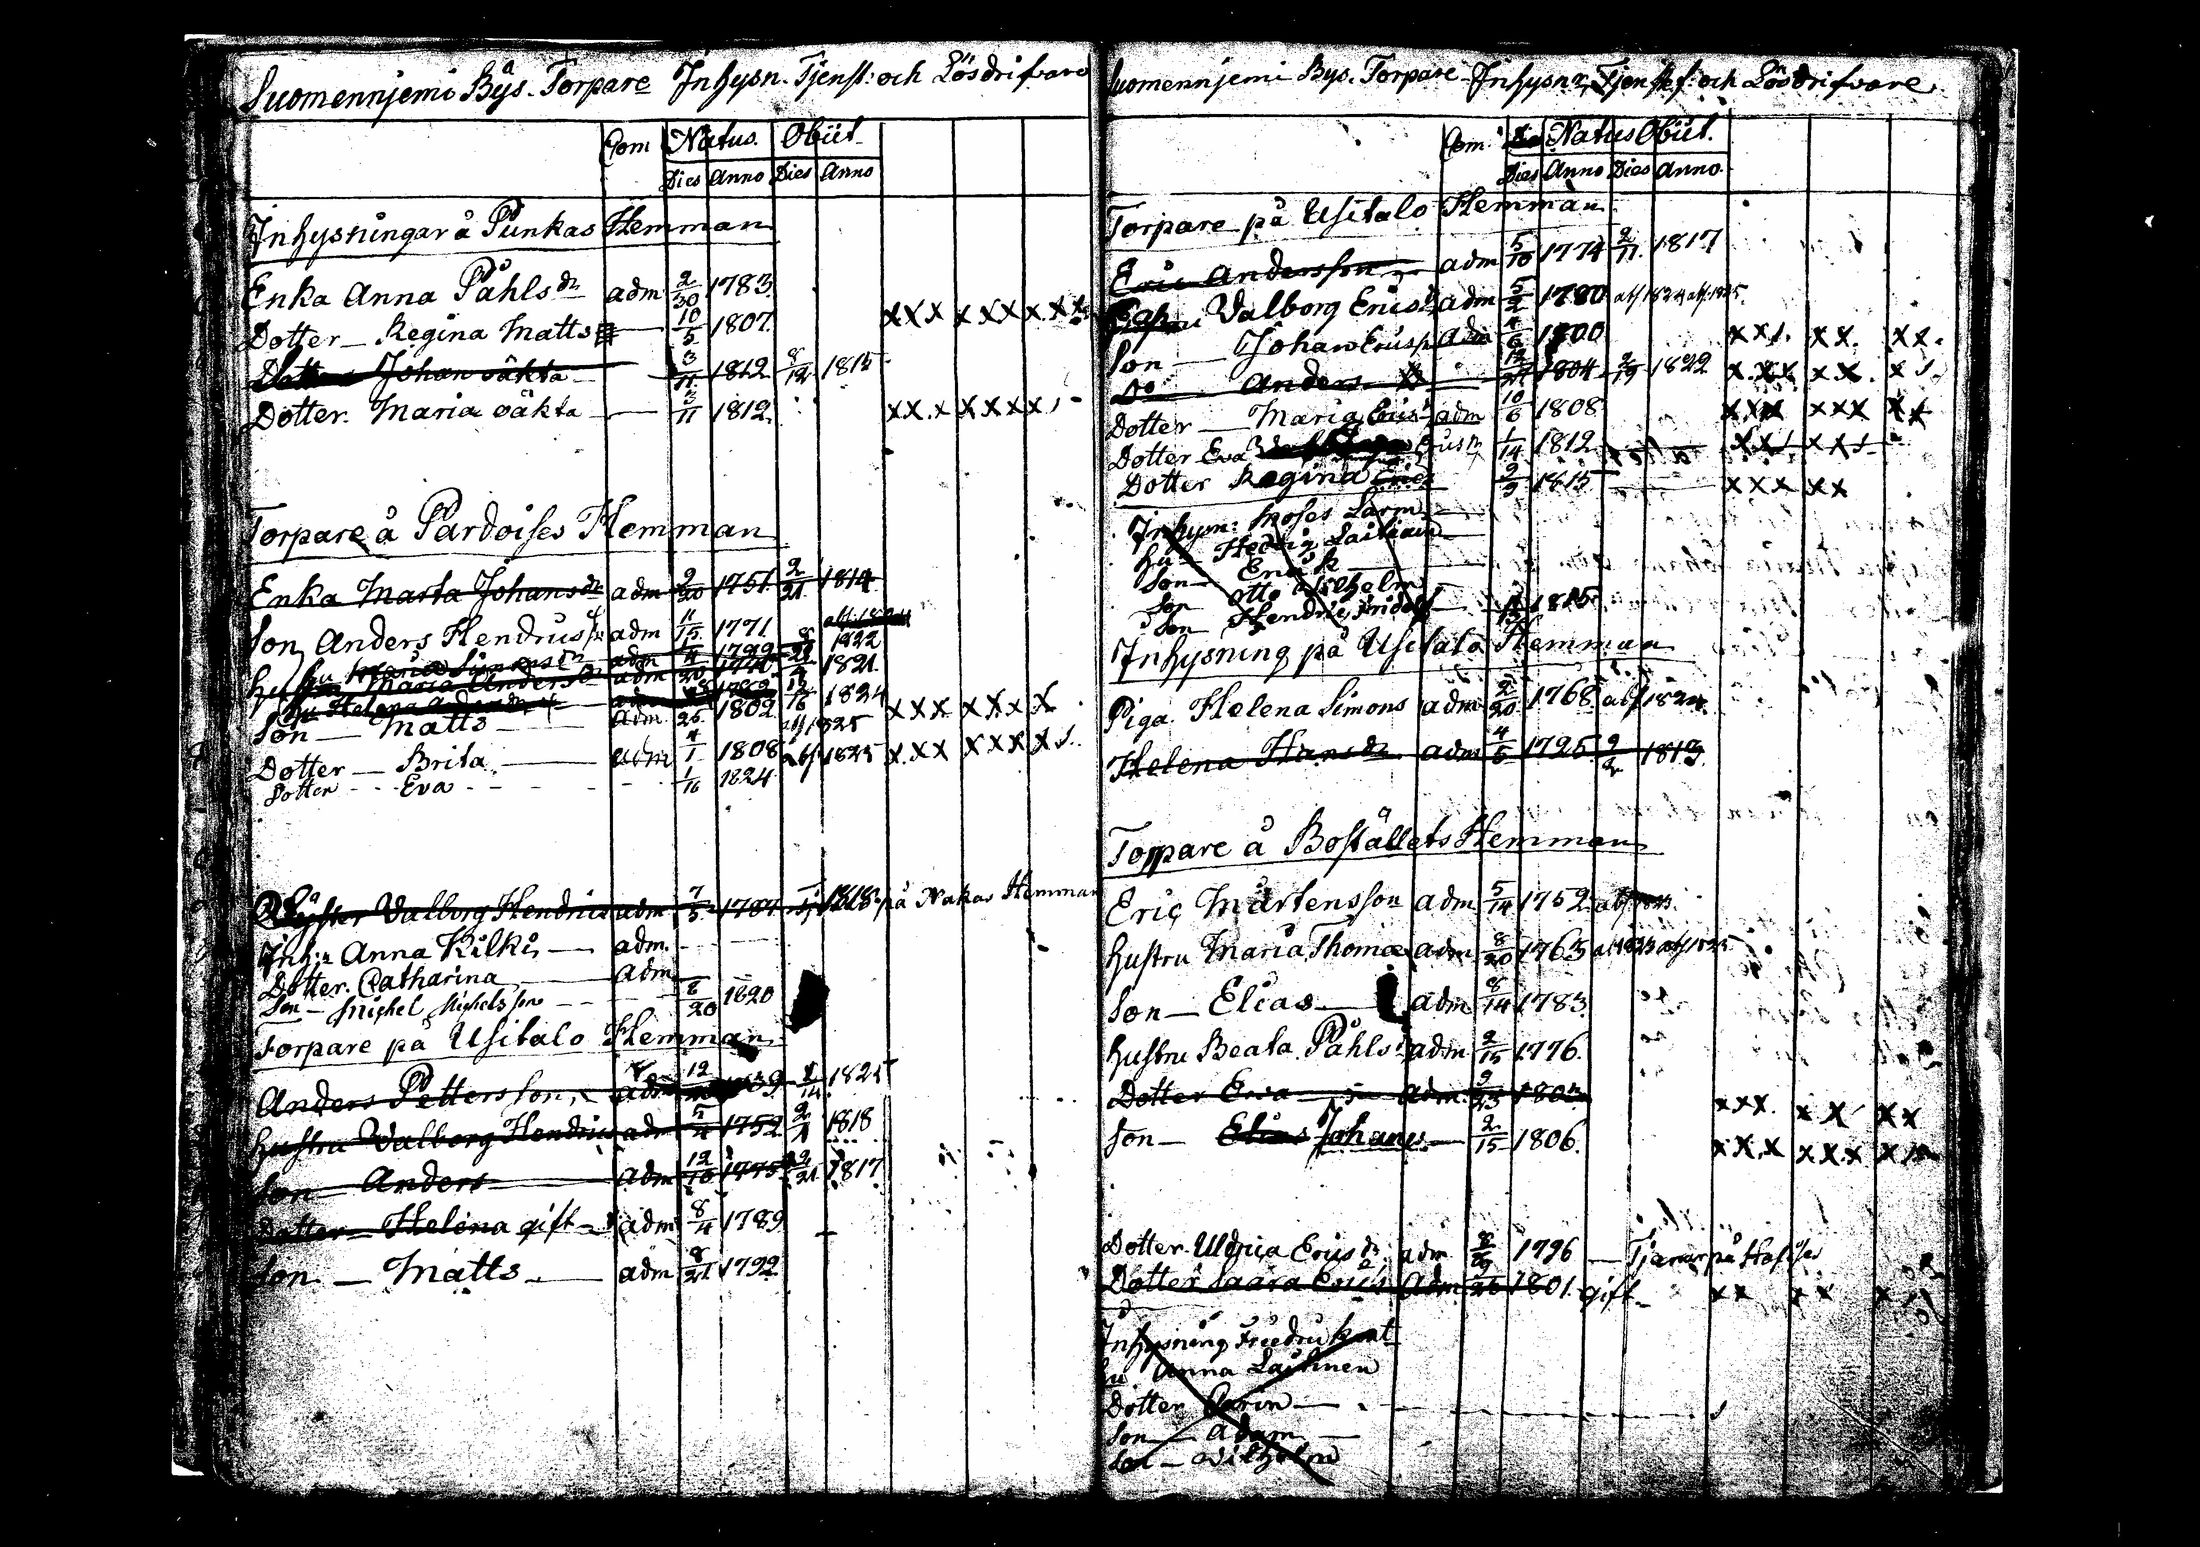 Suomennjemi Bÿs. Torpare Inhysn. Tjenst: och Lösdrifvare
Com Natus. Obiit
Dies Anno Dies Anno
Inhysningar å Punkas Hemman
Enka Anna Påhlsdr adm 2/30 1783
Dotter Regina Matts 10/5 1807 xxx xxx xxx
Johan oäkta 3/11 1812 8/12 1815
Dotter Maria oäkta 3/11 1812 xx.x xxxx
Torpare å Pardoises Hemman
Enka Marta Johansdr adm 2/20 1751 2/21 1814
Son Anders Hendricss adm 11/15 1771
hu Maria Simonsdr adm 1822
Maria Anders adm 1821
hu Helena 1824
Son Matts adm 1802 abf 1825 xxx xxx x
Dotter Brita adm 4/1 1808 abf 1825 x.xx xxx x
Dotter Eva 1/16 1824
Syster Valborg Hendrics adm 7/5 1787 1818 på Nakas Hemman
Inh:r Anna Kilki adm.
Dotter Catharina adm
Son Michel Michelsson 8/20 1820
Torpare på Usitalo Hemman
Anders Pettersson adm 12 1/14 1825
hustru Valborg Hendrics adm 5/4 1752 2/1 1818
Son Anders adm 12/10 1775 2/21 1817
Dotter Helena gift adm 8/4 1789
Son Matts adm 8/21 1792
Suomennjemi Bys. Torpare Inhysnr, Tjenstef: och Lösdrifvare
Com. Natus Obiit.
Dies Anno Dies Anno.
Torpare på Usitalo Hemman
Eric Andersson adm 5/10 1774 2/11 1817
Valborg Ericsdr adm 5/2 1780 abf 1824 abf 1825
Son Johan Ericss adm 4/6 1800 xx xx. xx.
Do Anders 12/27 1804 2/19 1822 x.xx x.x x
Dotter Maria Ericsdr adm 10/6 1808 xxx xxx xx
Dotter Eva 1/14 1812 xx xx
Dotter Regina Erics 9/9 1815 xxx xx
Inhysn: Moses Lärm
hu Hedvig Laitiain
Son Erick
Son Otto Wilhelm
Son Hendric 1815
Inhysning på Usitalo Hemman
Piga Helena Simons adm 2/20 1768 abf 1824
Helena Hansdr adm 4/5 1725 2/2 1813
Torpare å Boställets Hemman
Eric Mårtensson adm 5/14 1752 abf 1823
hustru Maria Thomæ adm 8/20 1763 abf 1825
Son Elias adm 8/14 1783
hustru Beata Påhlsdr adm 2/15 1776
Dotter Eva adm 9/23 1803 xxx xx xx
Son Elias Johanes 2/15 1806 xx.x xx.x xx
Dotter Ulrica Ericsdr adm 8 1796 Tjenar på
Dotter Saara Erics adm 9/26 1801 gift xx xx x
Inhysning Friedric
hu Anna Laitinen
Dotter Carin
Son Adam
Son Wilhelm